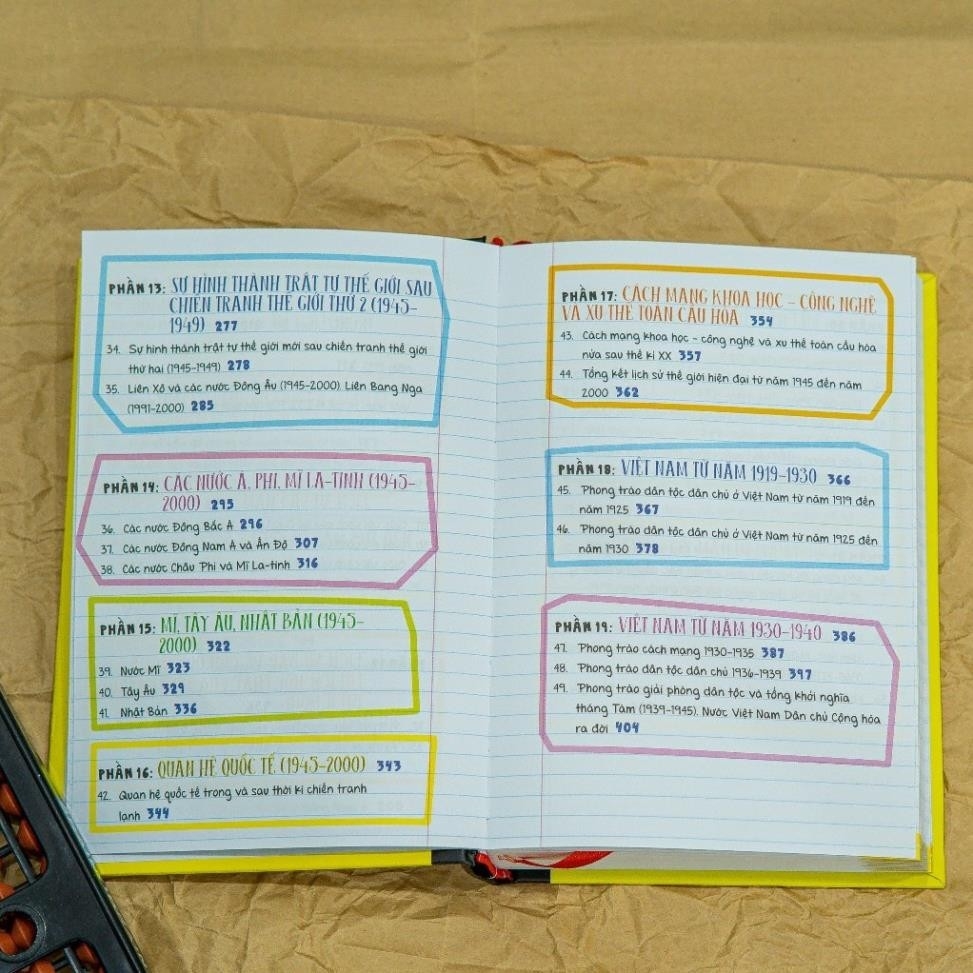 PHẦN 13: SỰ HÌNH THÀNH TRẬT TỰ THẾ GIỚI SAU
CHIẾN TRANH THẾ GIỚI THỨ 2 (1945-
1949) 277
34. Sự hình thành trật tự thế giới mới sau chiến tranh thế giới
thứ hai (1945-1949) 278
35. Liên Xô và các nước Đông Âu (1945-2000). Liên Bang Nga
(1991-2000) 285
PHẦN 14: CÁC NƯỚC Á, PHI, MĨ LA-TINH (1945-
2000) 295
36. Các nước Đông Bắc Á 296
37. Các nước Đông Nam Á và Ấn Độ 307
38. Các nước Châu Phi và Mĩ La-tinh 316
PHẦN 15: MĨ, TÂY ÂU, NHẬT BẢN (1945-
2000) 322
39. Nước Mĩ 323
40. Tây Âu 329
41. Nhật Bản 336
PHẦN 16: QUAN HỆ QUỐC TẾ (1945-2000) 343
42. Quan hệ quốc tế trong và sau thời kì chiến tranh
lạnh 344
PHẦN 17: CÁCH MẠNG KHOA HỌC - CÔNG NGHỆ
VÀ XU THẾ TOÀN CẦU HÓA 354
43. Cách mạng khoa học - công nghệ và xu thế toàn cầu hóa
nửa sau thế kỉ XX 357
44. Tổng kết lịch sử thế giới hiện đại từ năm 1945 đến năm
2000 362
PHẦN 18: VIỆT NAM TỪ NĂM 1919-1930 366
45. Phong trào dân tộc dân chủ ở Việt Nam từ năm 1919 đến
năm 1925 367
46. Phong trào dân tộc dân chủ ở Việt Nam từ năm 1925 đến
năm 1930 378
PHẦN 19: VIỆT NAM TỪ NĂM 1930-1940 386
47. Phong trào cách mạng 1930-1935 387
48. Phong trào dân tộc dân chủ 1936-1939 397
49. Phong trào giải phóng dân tộc và tổng khởi nghĩa
tháng Tám (1939-1945). Nước Việt Nam Dân chủ Cộng hòa
ra đời 404